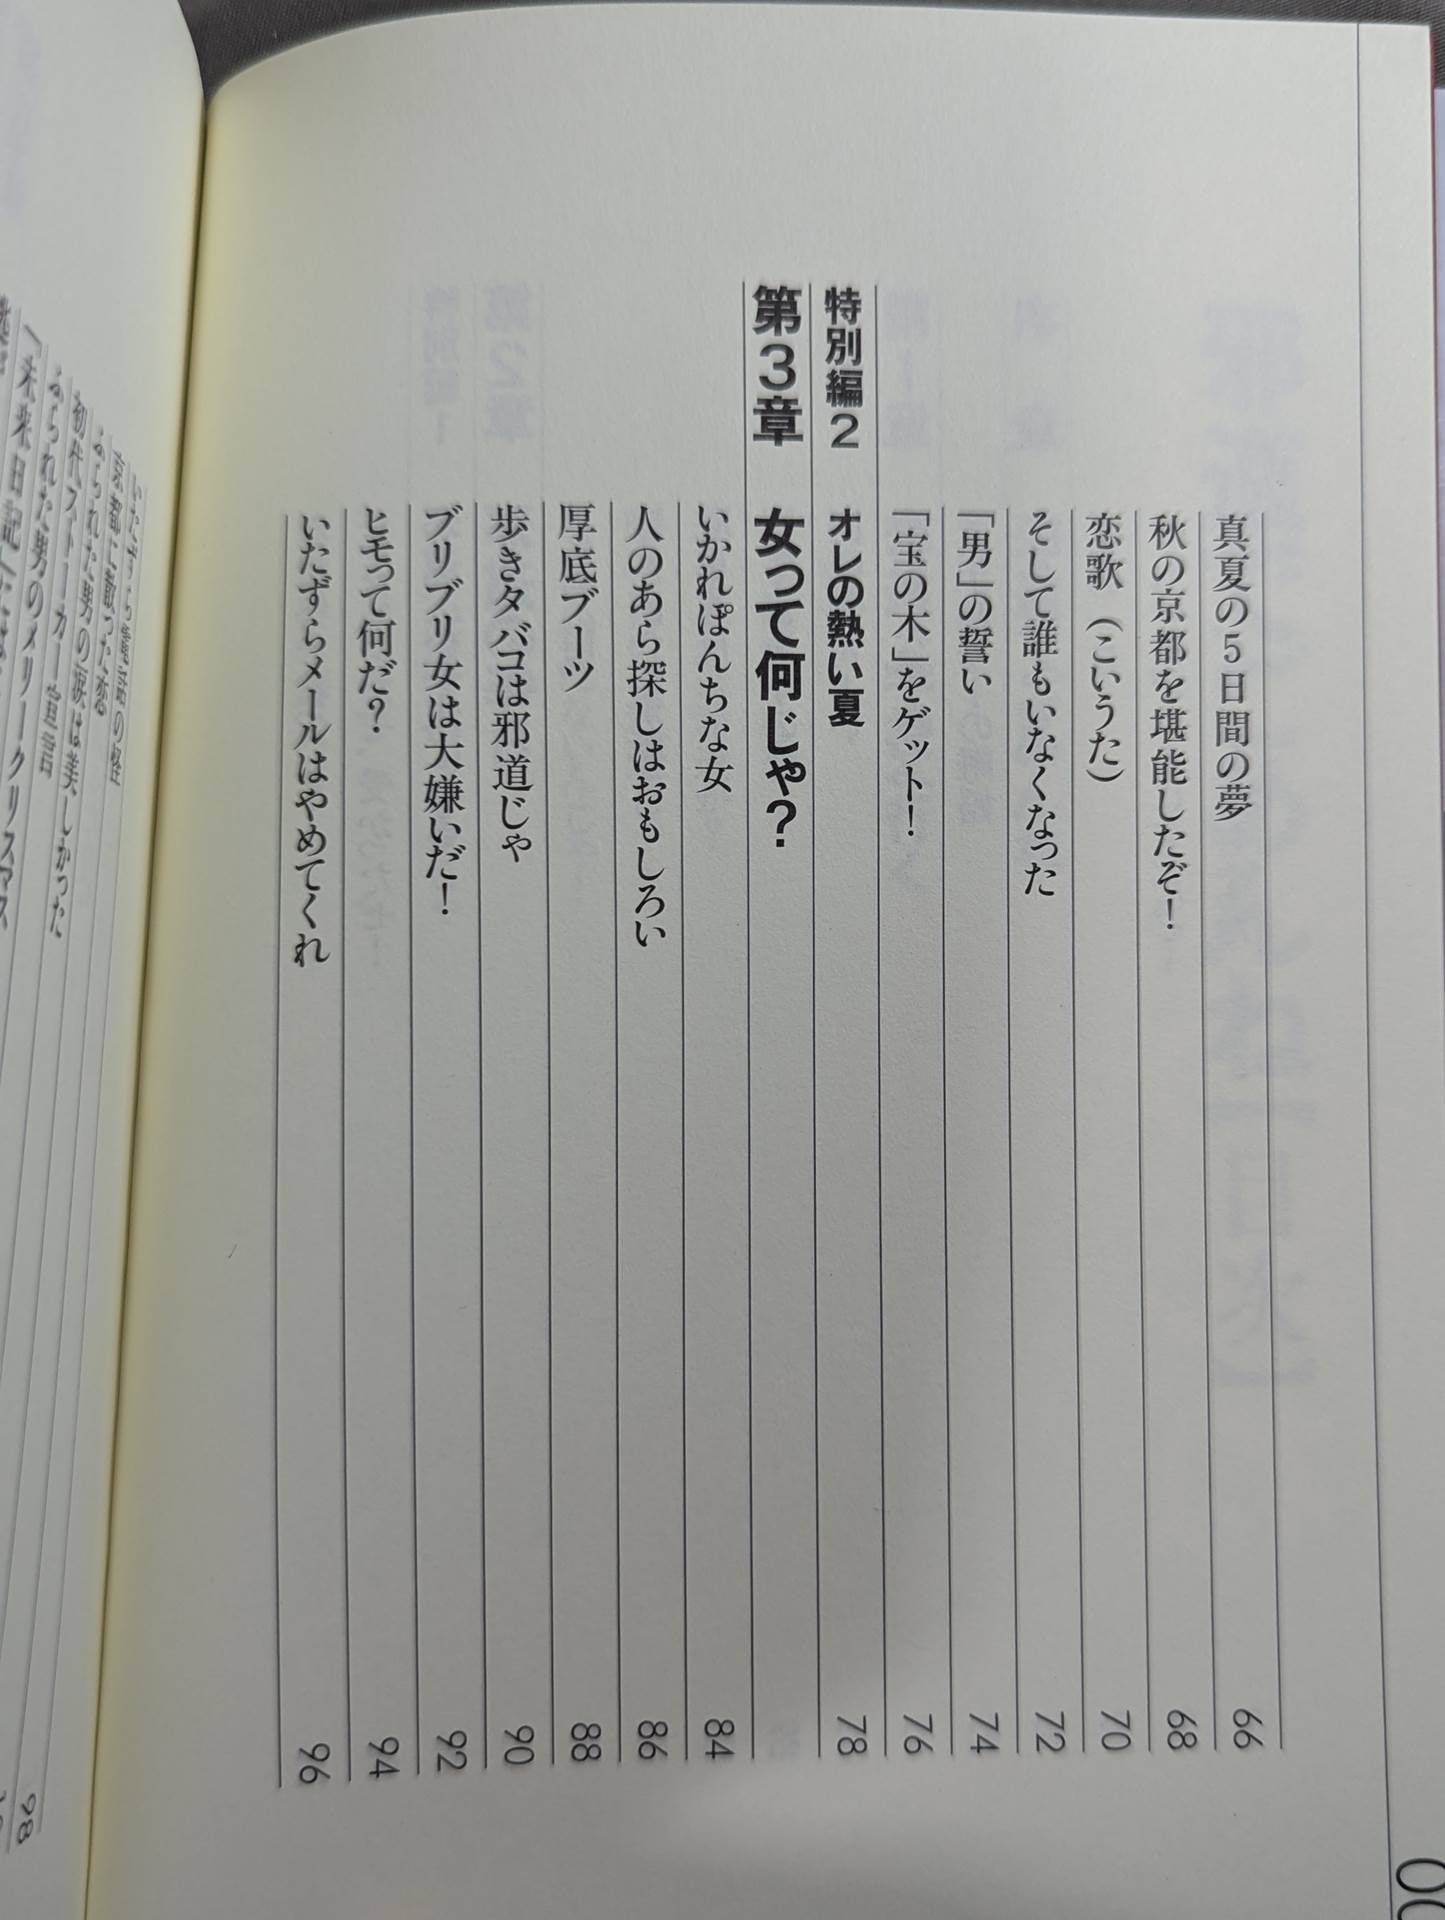 真夏の5日間の夢 66
秋の京都を堪能したぞ! 68
恋歌(こいうた) 70
そして誰もいなくなった 72
「男」の誓い 74
「宝の木」をゲット! 76
特別編2 オレの熱い夏 78
第3章 女って何じゃ?
いかれぽんちな女 84
人のあら探しはおもしろい 86
厚底ブーツ 88
歩きタバコは邪道じゃ 90
ブリブリ女は大嫌いだ! 92
ヒモって何だ? 94
いたずらメールはやめてくれ 96
いたずら電話の怪
京都に散った恋
ふられた男の涙は美しかった
初代ストーカー宣言
ふられた男のメリークリスマス 98